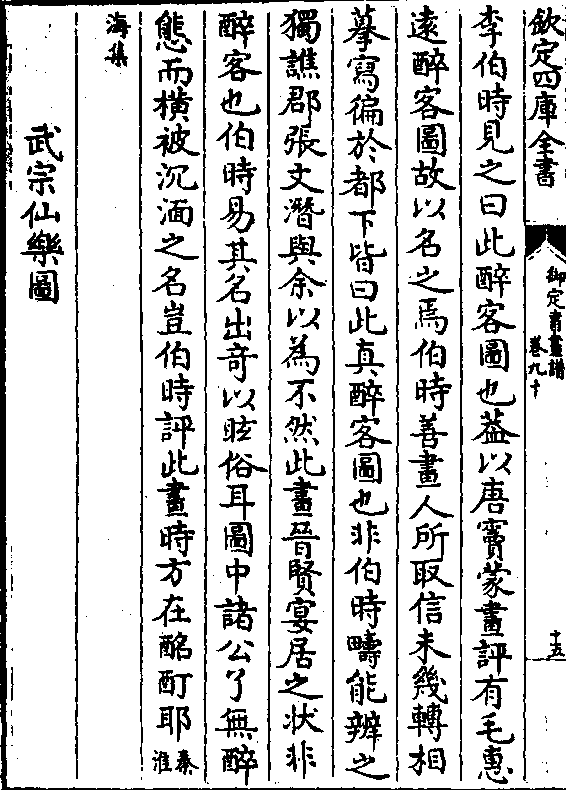 欽定四庫全書
御定書畫譜
卷九十
十五
李伯時見之曰此醉客圖也葢以唐竇蒙畫評有毛惠
遠醉客圖故以名之焉伯時善畫人所取信未幾轉相
摹寫徧於都下皆曰此真醉客圖也非伯時疇能辨之
獨譙郡張文潛與余以為不然此畫晉賢宴居之状非
醉客也伯時易其名出竒以眩俗耳圖中諸公了無醉
態而横被沉湎之名豈伯時評此畫時方在酩酊耶秦淮
海集
武宗仙樂圖